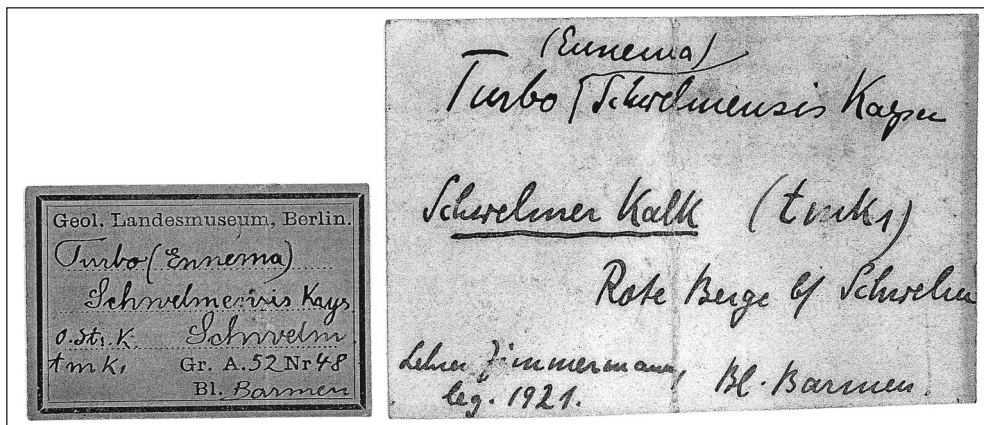 Geol. Landesmuseum, Berlin.
Turbo (Ennema)
Schwelmensis Kays
o. St. K. Schwelm
tmk, Gr. A. 52 Nr 48
Bl. Barmen
(Ennema)
Turbo Schwelmensis Kayser
Schwelmer Kalk (tmk1)
Rote Berge b/ Schwelm
Lehrer Zimmermann,
leg. 1921.
Bl. Barmen.